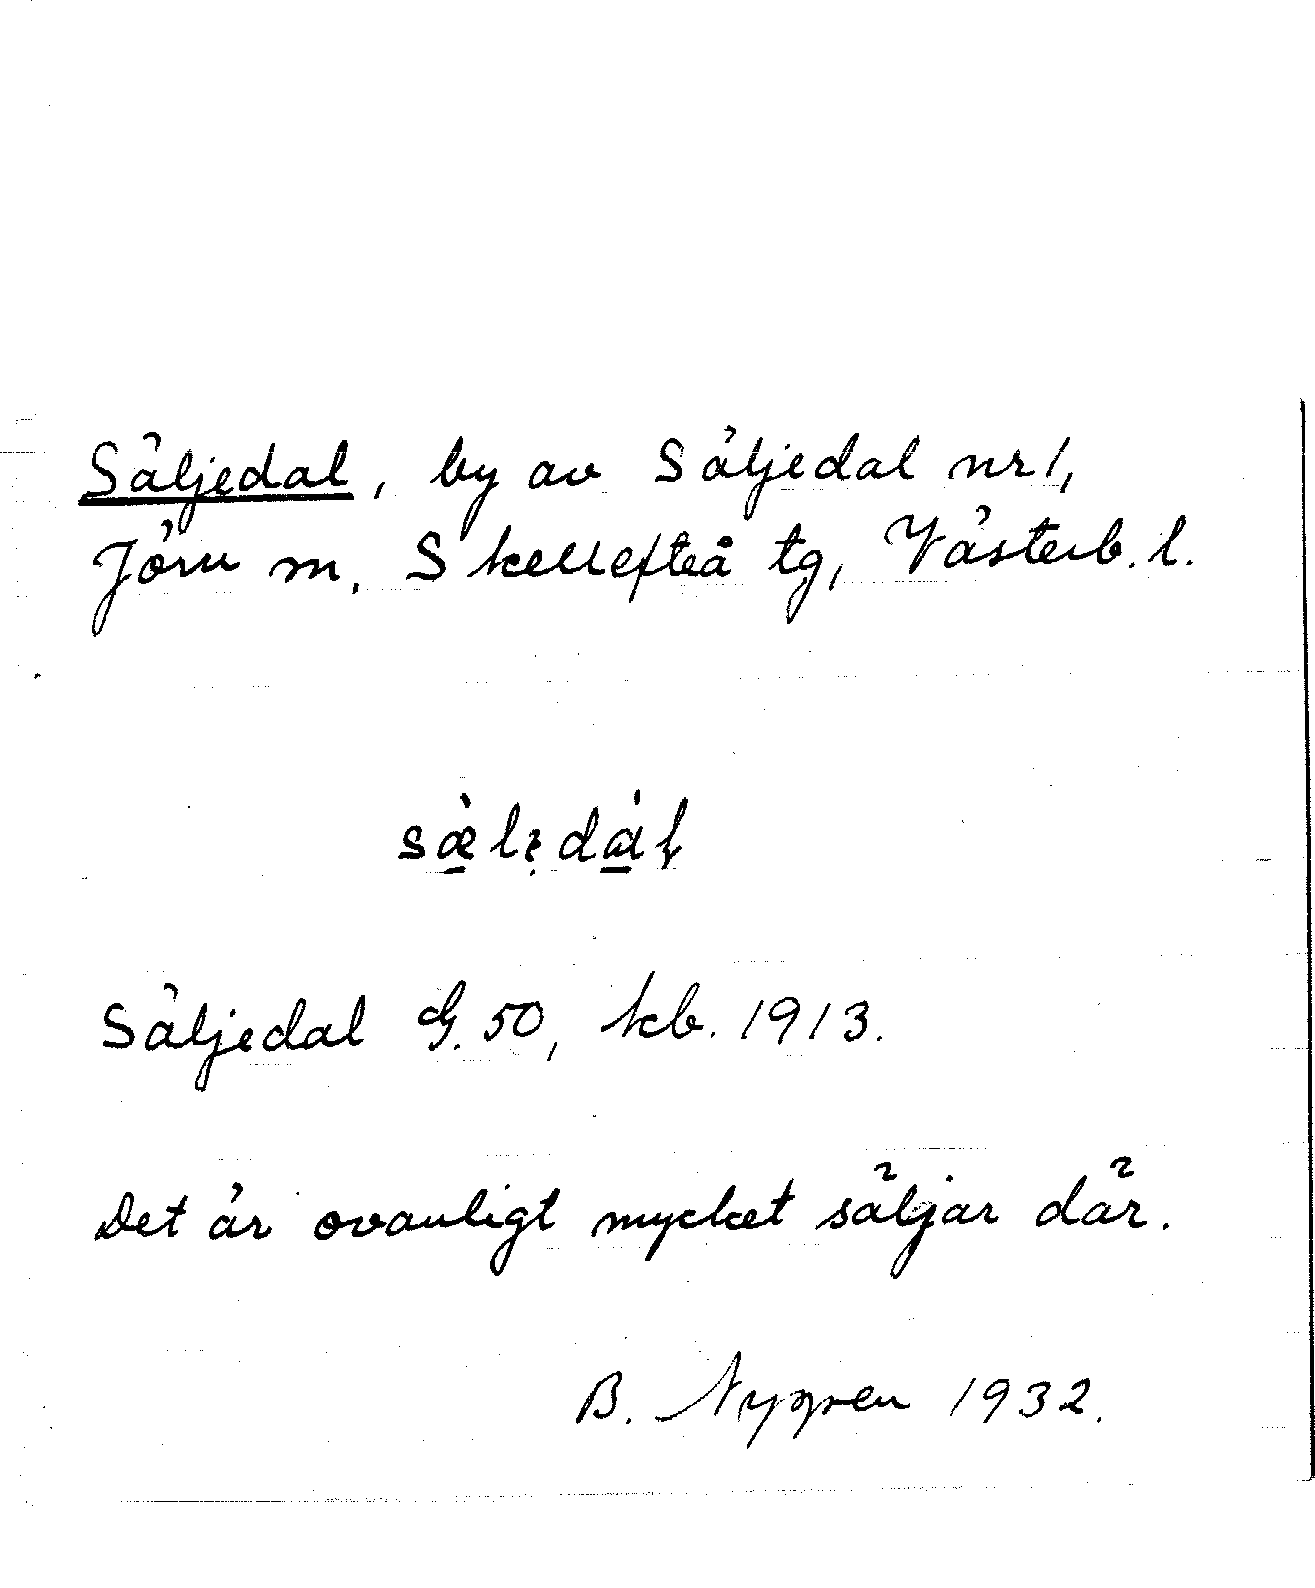 Säljedal, by av Säljedal nr 1,
Jörn m. Skellefteå tg, Västerb. l.
Säljedal G. 50, kb. 1913.
Det är ovanligt mycket säljar där.
B. Nygren 1932.